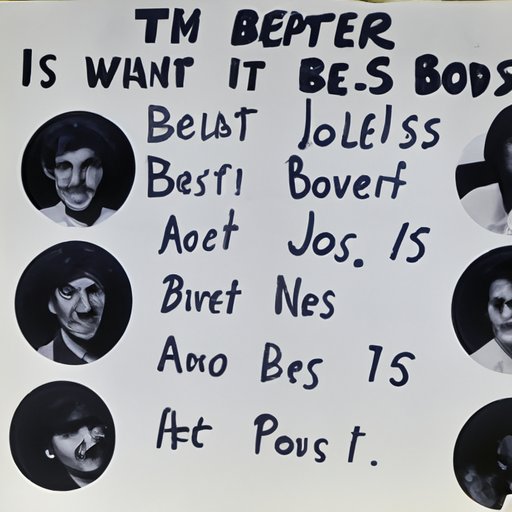 TM BEPTER
IS WANT IT BE.S BODS
BELBT JOLEISS
BESTI BOVERT
AOET JOS. IS
BIVET NES
AOO BES IS
AET POUS T.